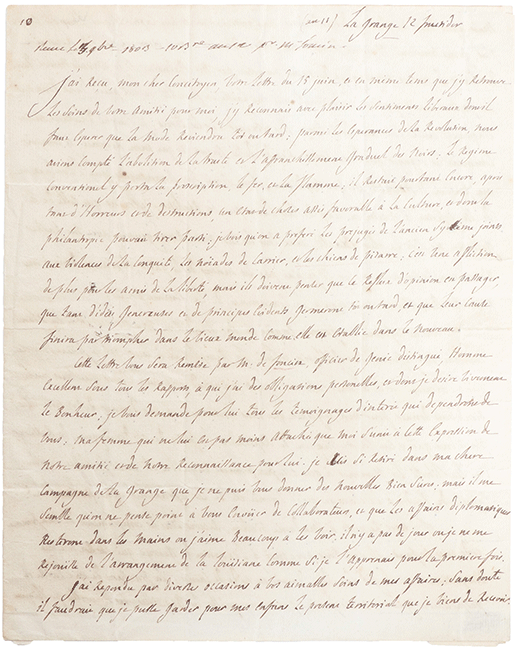 10
an 11) La Grange 12 messidor
J'ai Recu, mon cher Concitoyen, votre Lettre du 15 juin, et en même tems que j'y Retrouve
les soins de votre Amitié pour moi, j'y Reconnais avec plaisir les sentimens liberaux dont il
faut esperer que la mode Reviendra tot ou tard; parmi les Esperances de La Revolution nous
avions compté L'abolition de La traite et l'affranchissement Graduel des Noirs; le Regime
Conventionel y porta la proscription, le fer, et la flamme; il Restait pourtant encore, après
tant d'Horreurs et de destructions un état de choses assés favorable à la culture, et dont la
philantropie pouvait tirer parti; je vois qu'on a preferé les prejugés de l'ancien Systeme joints
aux violences de La Conquête, les noiades de Carrier, et les chiens de pizarre; c'est une affliction
de plus pour les amis de la liberté mais ils doivent penser que le Reflux d'opinion est passager,
que tant d'idées Genereuses et de principes évidents Germeront tot ou tard, et que leur cause
finira par triompher dans le vieux monde comme elle est etablie dans le nouveau.
Cette Lettre vous sera Remise par M. de foncin, officier de genie distingué, Homme
Excellent sous tous les Rapports, à qui j'ai des obligations personelles, et dont je desire vivement
le Bonheur, je vous demande pour lui tous les temoignages d'interêt qui dependront de
vous; ma femme qui ne lui est pas moins attachée que moi s'unit à cette Expression de
notre amitié et de notre Reconnaissance pour lui. je vis si Retiré dans ma chere
Campagne de La Grange que je ne puis vous donner des nouvelles Bien sures, mais il me
semble qu'on ne pense point à vous Envoier de Collaborateur, et que les affaires diplomatiques
Resteront dans les mains où j'aime Beaucoup à les voir; il n'y a pas de jour où je ne me
Rejouisse de l'arrangement de la Louisiane comme si je l'apprenais pour la premiere fois.
J'ai Repondu par diverses occasions à vos aimables soins de mes affaires; sans doute
il faudrait que je pusse garder pour mes enfans le present territorial que je viens de Recevoir,